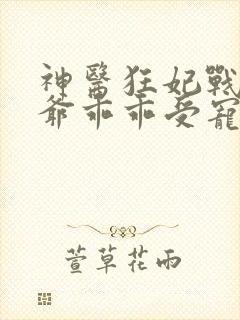 神醫狂妃戰
爺乖乖受寵
萱草花雨